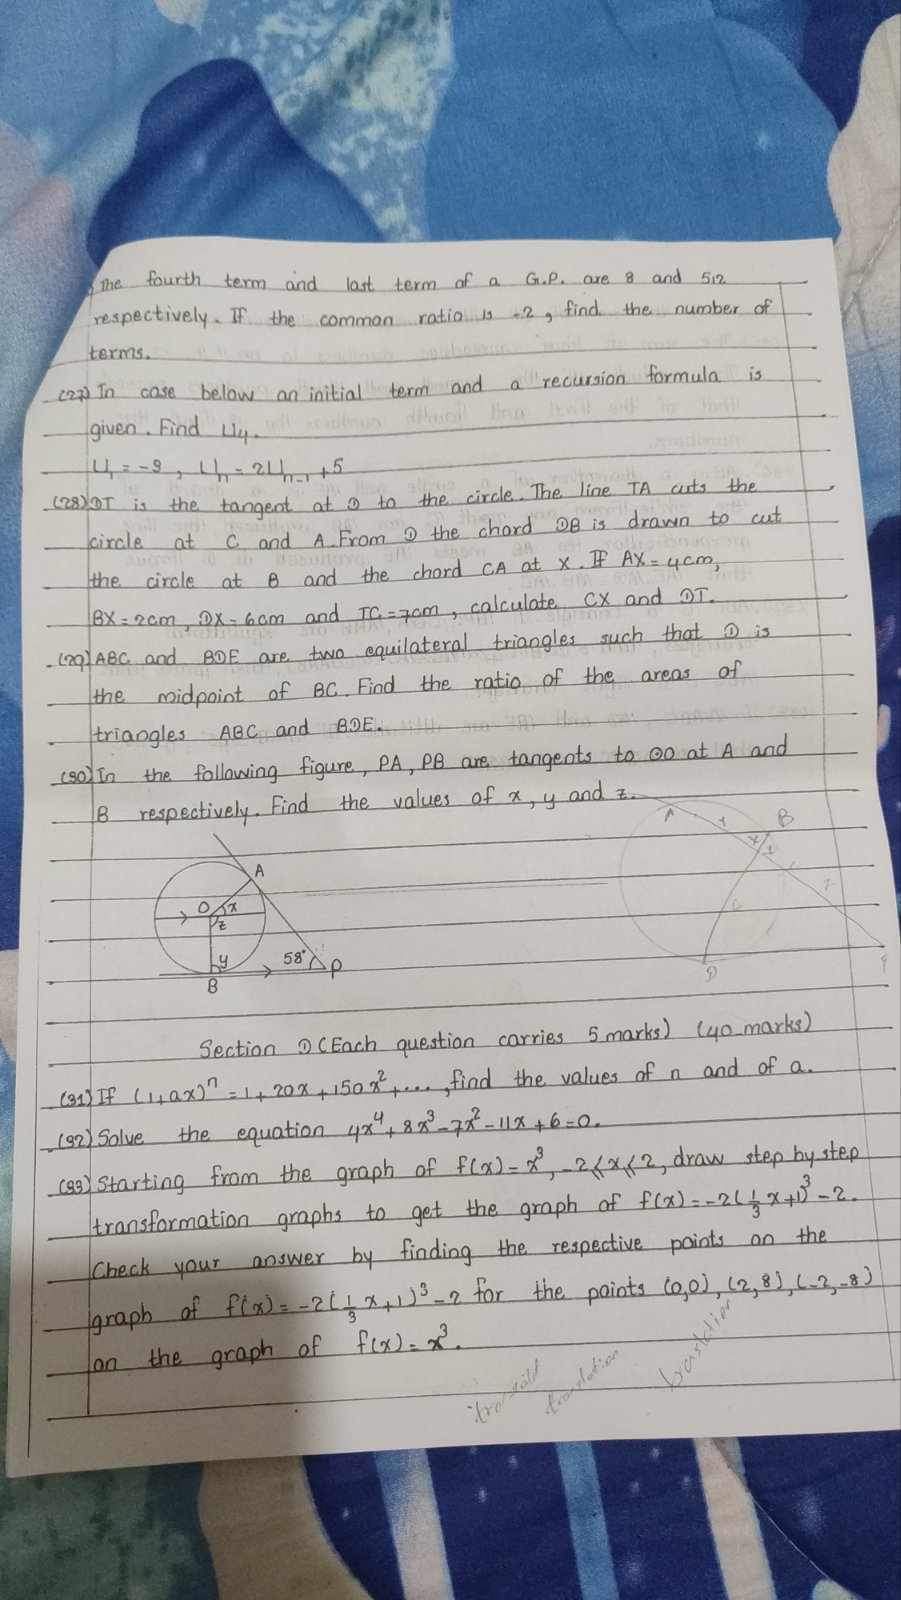 The fourth term and last term of a G.P. are 8 and 512
respectively. If the common ratio is -2, find the number of
terms.
(27) In case below an initial term and a recursion formula is
given. Find U4.
U1 = -9, Un = 2Un-1 + 5
(28) DT is the tangent at D to the circle. The line TA cuts the
circle at C and A. From D the chord DB is drawn to cut
the circle at B and the chord CA at X. If AX = 4cm,
BX = 2cm, DX = 6cm and TC = 7cm, calculate CX and DT.
(29) ABC and BDE are two equilateral triangles such that D is
the midpoint of BC. Find the ratio of the areas of
triangles ABC and BDE.
(30) In the following figure, PA, PB are tangents to ⊙O at A and
B respectively. Find the values of x, y and z.
A
B
O
x
z
y
58°
P
B
D
Section D (Each question carries 5 marks) (40 marks)
(31) If (1+ax)^n = 1+20x+150x²+..., find the values of n and of a.
(32) Solve the equation 4x⁴+8x³-7x²-11x+6=0.
(33) Starting from the graph of f(x) = x³, -2≤x≤2, draw step by step
transformation graphs to get the graph of f(x) = -2(1/3 x+1)³-2.
Check your answer by finding the respective points on the
graph of f(x) = -2(1/3 x+1)³-2 for the points (0,0), (2,8), (-2,-8)
on the graph of f(x) = x³.
translation